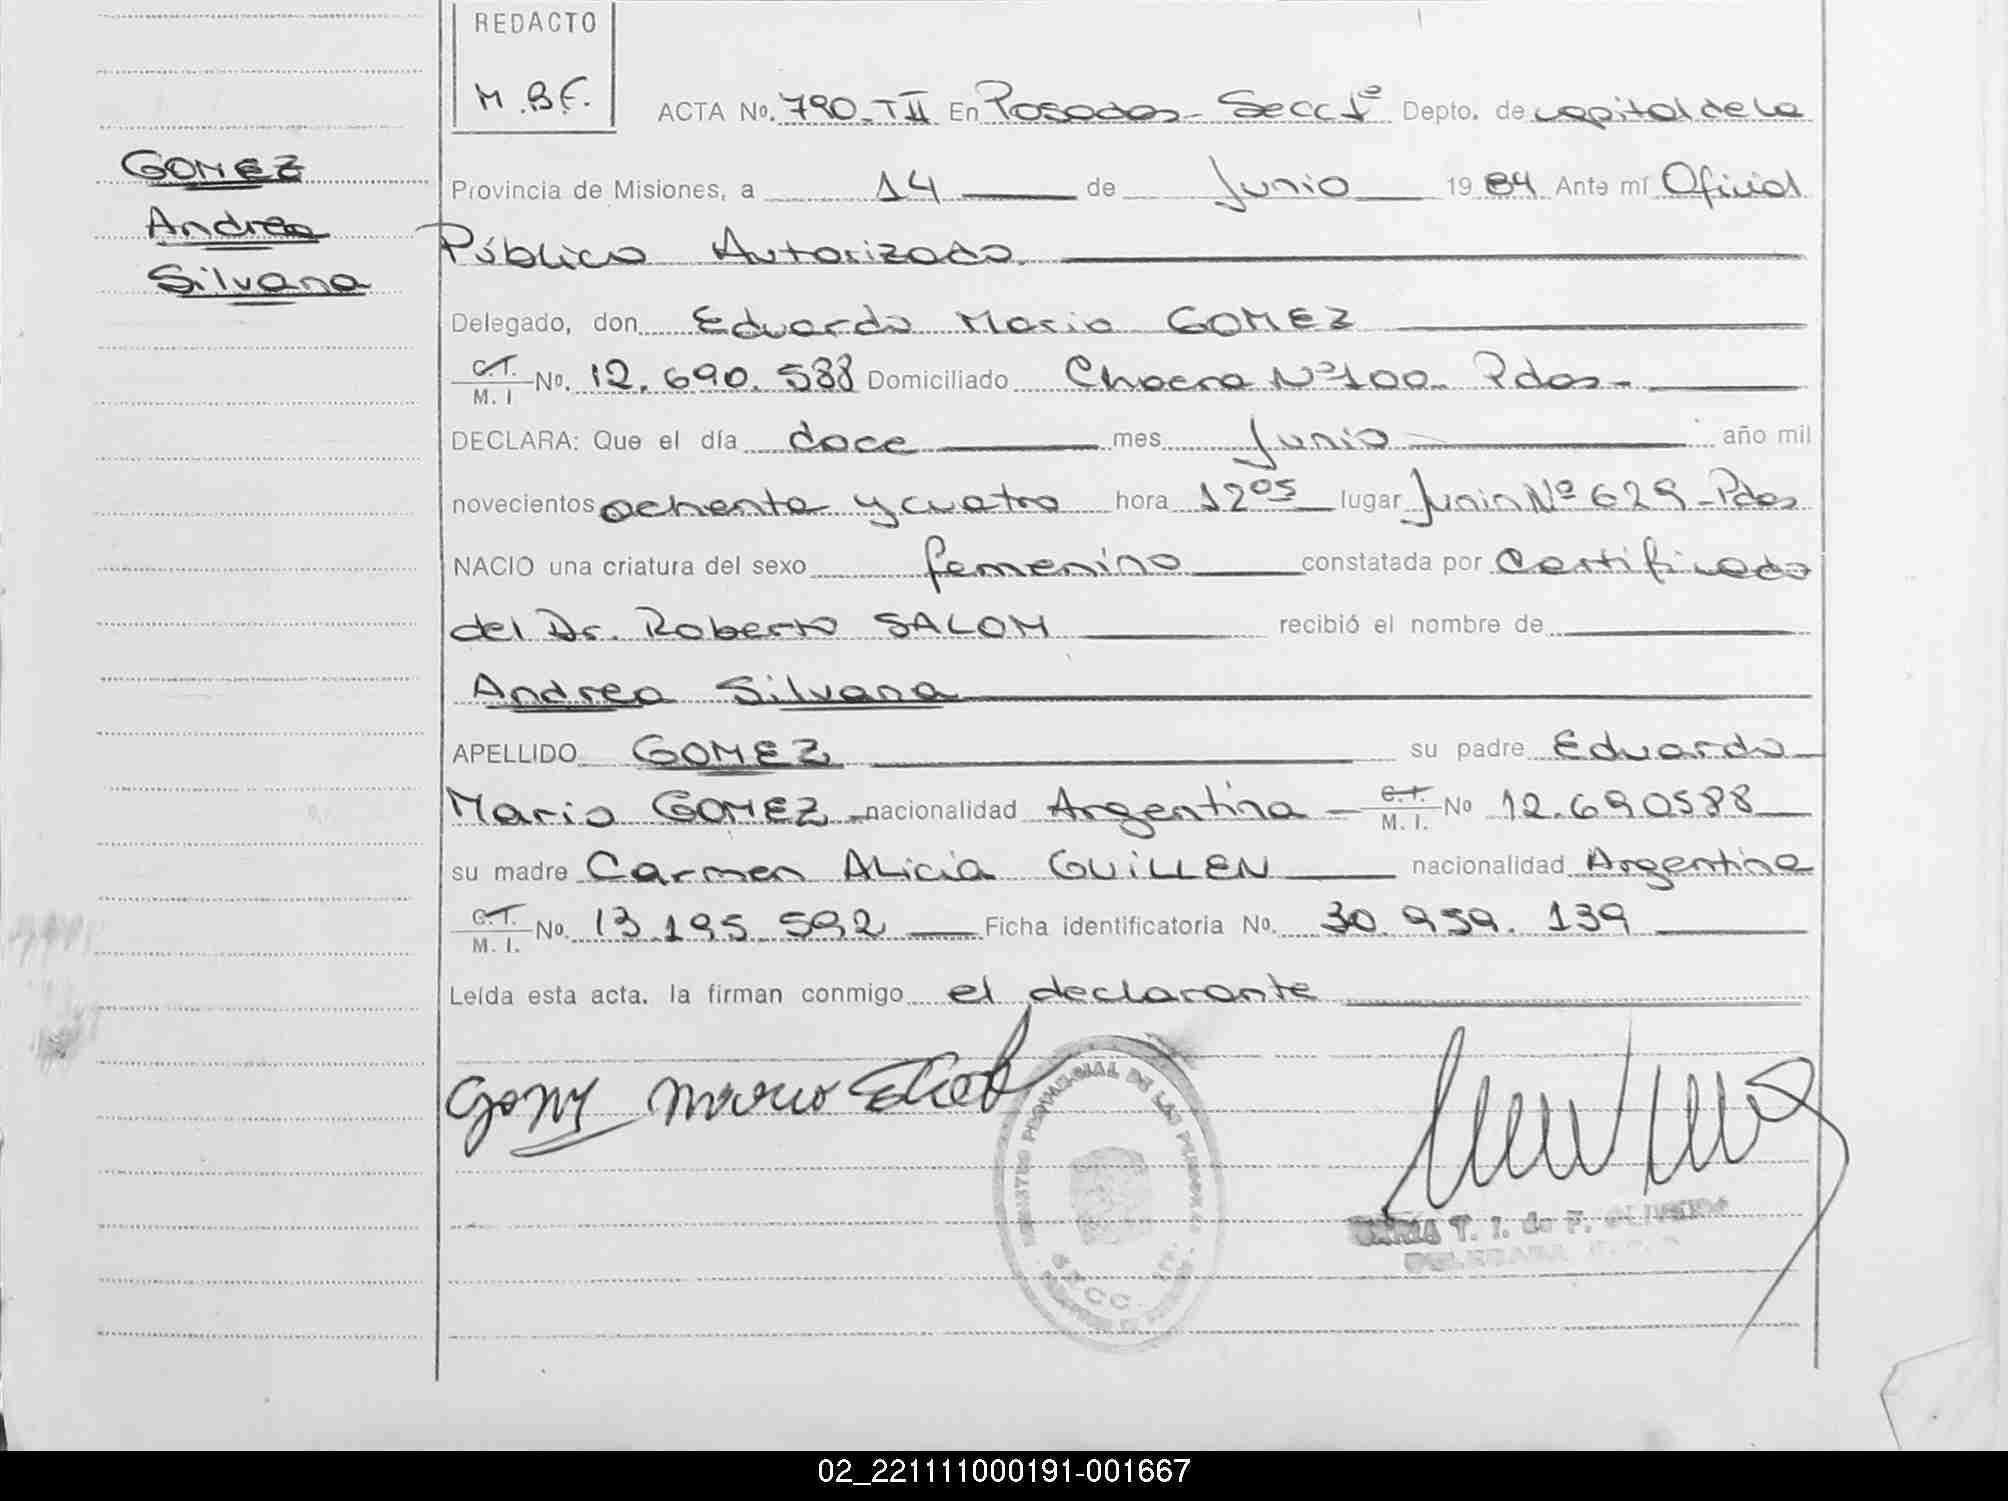 REDACTO
M.B.F.
ACTA No. 790-TII En Posadas - Secc 1º Depto. de capital de la
GOMEZ
Andrea
Silvana
Provincia de Misiones, a 14 de Junio 1984 Ante mí Oficial
Público Autorizado
Delegado, don Eduardo Mario GOMEZ
C.I. M. I No. 12.690.588 Domiciliado Chacra Nº 100 Pdas-
DECLARA: Que el día doce mes Junio año mil
novecientos ochenta y cuatro hora 12 05 lugar Junin Nº 629 - Pdas
NACIO una criatura del sexo femenino constatada por Certificado
del Dr. Roberto SALOM recibió el nombre de
Andrea Silvana
APELLIDO GOMEZ su padre Eduardo
Mario GOMEZ nacionalidad Argentina - C.I. M. I. No 12.690588
su madre Carmen Alicia GUILLEN nacionalidad Argentina
C.I. M. I. No. 13.195.592 Ficha identificatoria No. 30.959.139
Leída esta acta. la firman conmigo el declarante
Gomez Mario
REGISTRO PROVINCIAL DE LAS PERSONAS
MARIA T. I. de F. OLIVEIRA
02_221111000191-001667